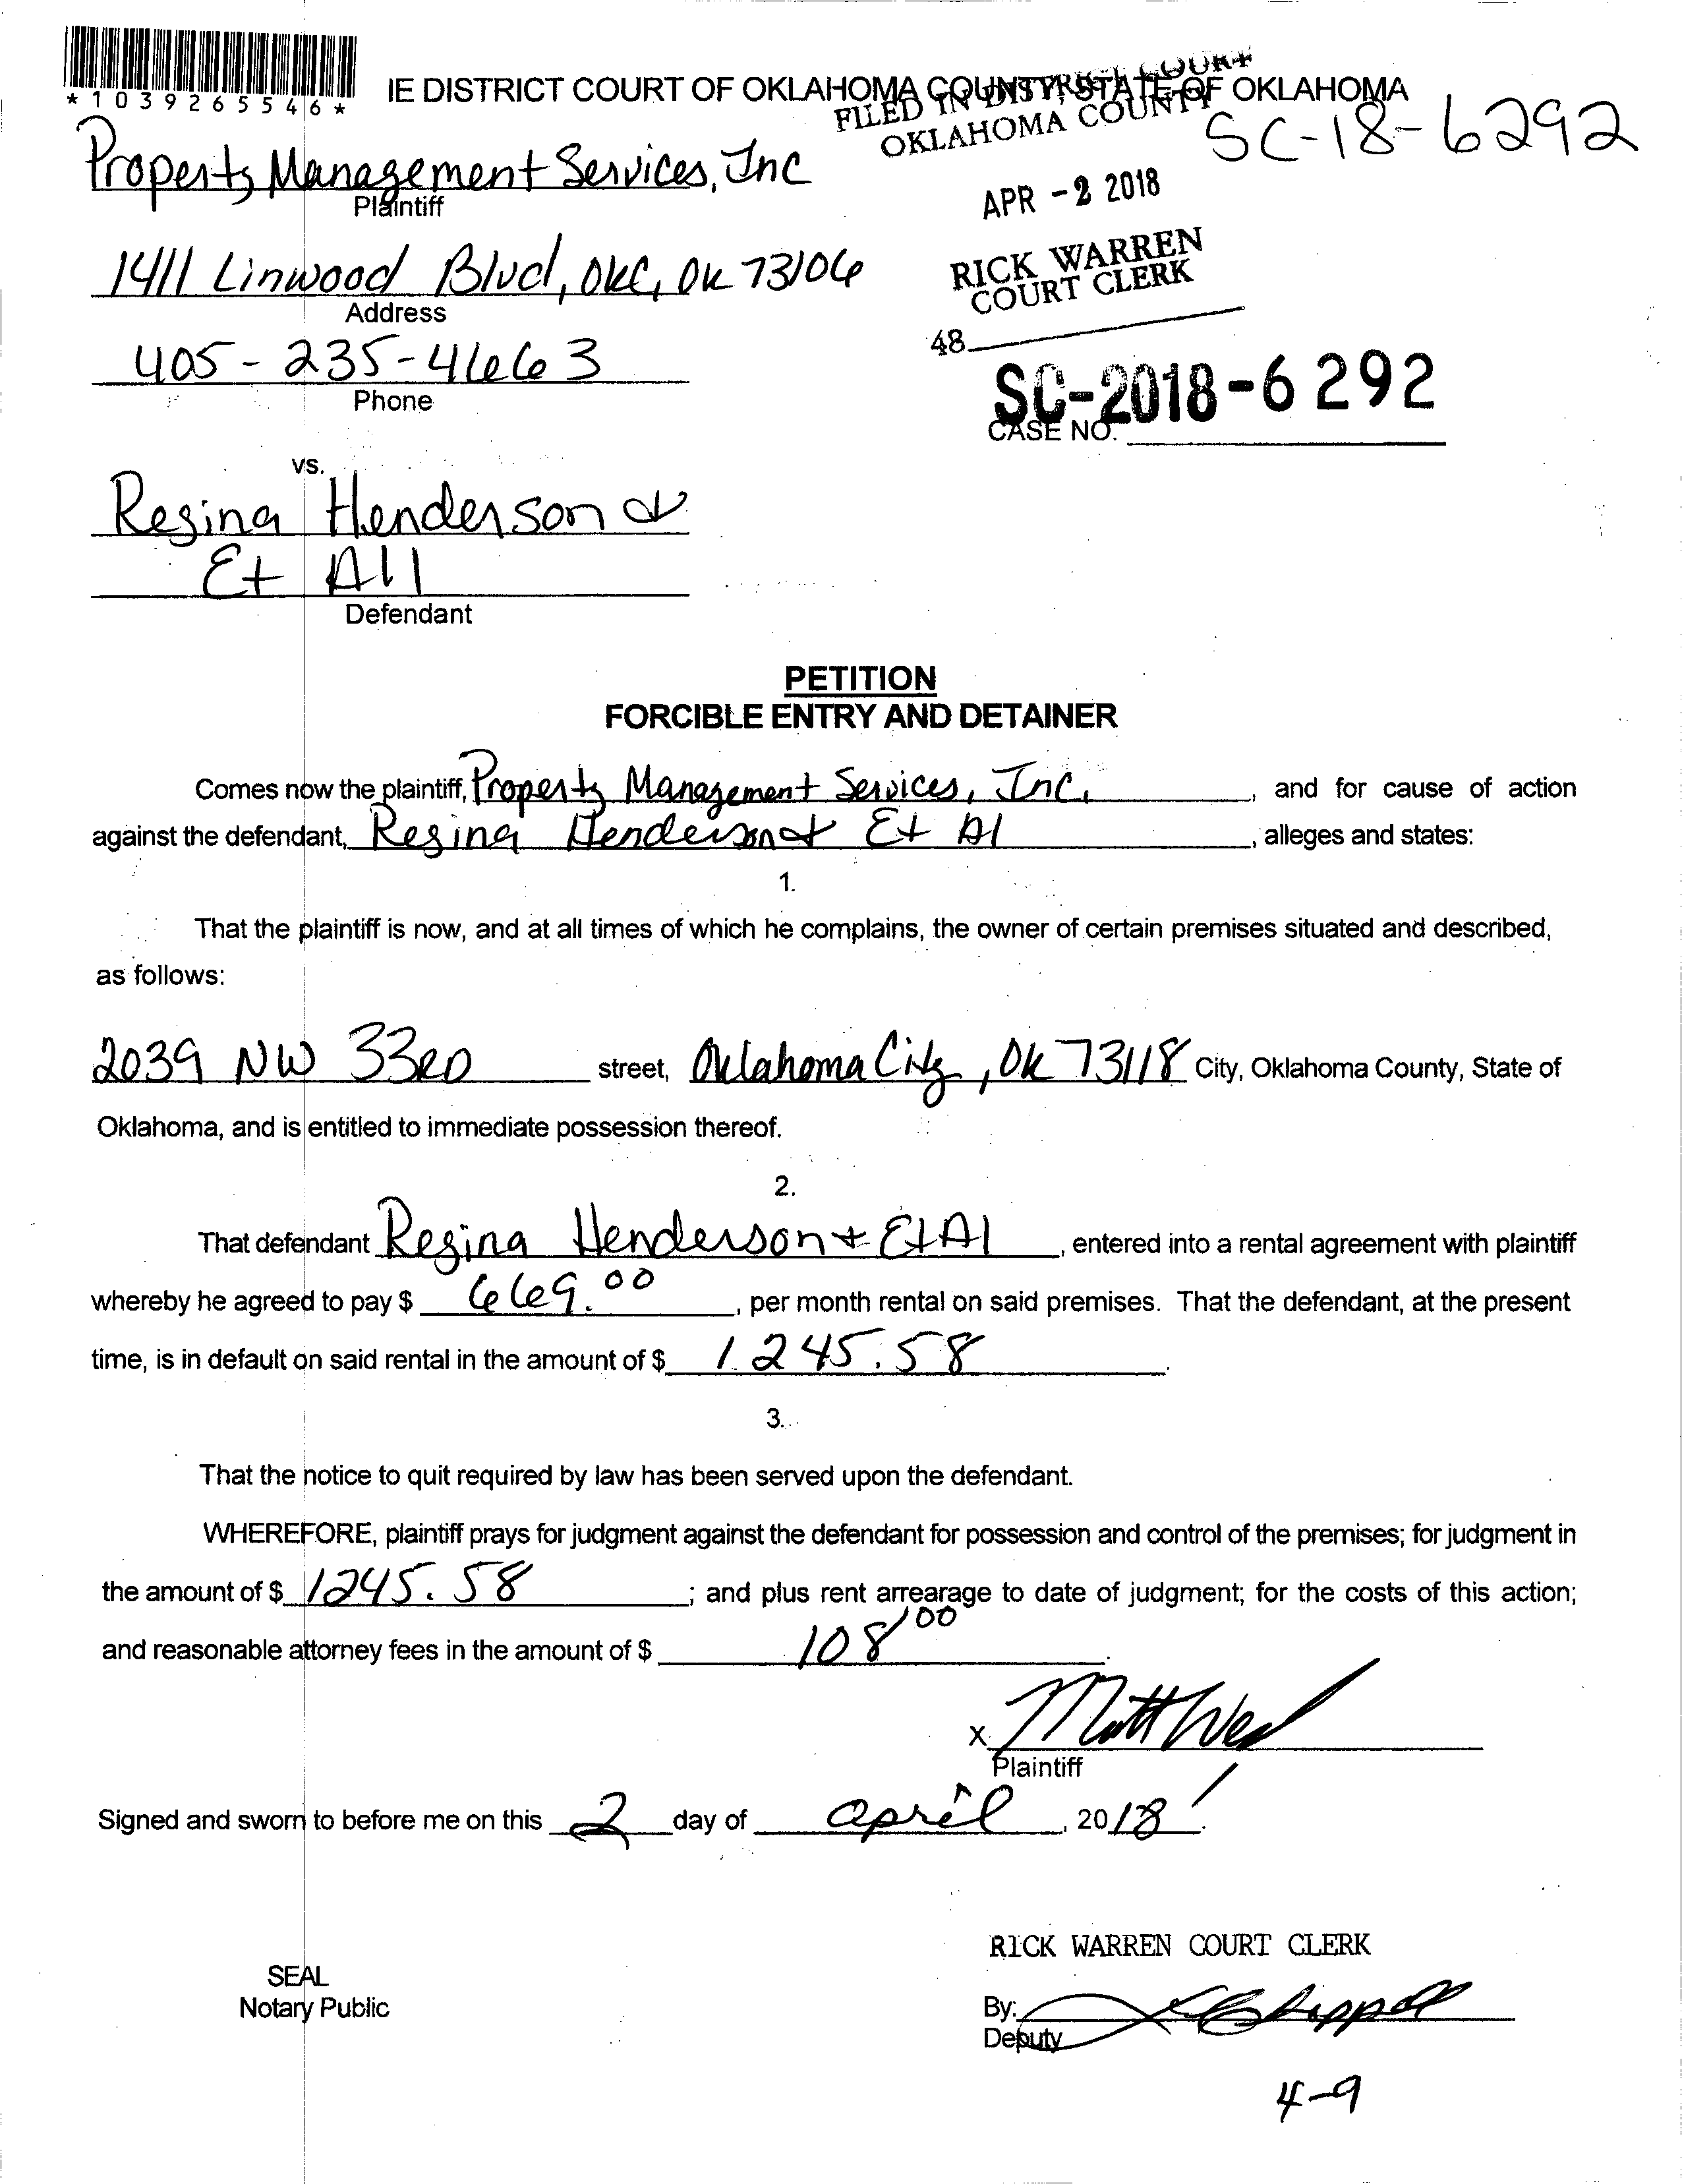 *1039265546*
IE DISTRICT COURT OF OKLAHOMA COUNTY, STATE OF OKLAHOMA
FILED IN DISTRICT COURT
OKLAHOMA COUNTY
SC-18-6292
Property Management Services, Inc
Plaintiff
APR -2 2018
1411 Linwood Blvd, OKC, OK 73106
Address
RICK WARREN
COURT CLERK
48
405-235-4663
Phone
SC-2018-6292
CASE NO.
vs.
Regina Henderson &
Et All
Defendant
PETITION
FORCIBLE ENTRY AND DETAINER
Comes now the plaintiff, Property Management Services, Inc, , and for cause of action
against the defendant, Regina Henderson + Et Al , alleges and states:
1.
That the plaintiff is now, and at all times of which he complains, the owner of certain premises situated and described,
as follows:
2039 NW 33RD street, Oklahoma City, OK 73118 City, Oklahoma County, State of
Oklahoma, and is entitled to immediate possession thereof.
2.
That defendant Regina Henderson + Et Al , entered into a rental agreement with plaintiff
whereby he agreed to pay $ 669.00 , per month rental on said premises. That the defendant, at the present
time, is in default on said rental in the amount of $ 1245.58 .
3.
That the notice to quit required by law has been served upon the defendant.
WHEREFORE, plaintiff prays for judgment against the defendant for possession and control of the premises; for judgment in
the amount of $ 1245.58 ; and plus rent arrearage to date of judgment; for the costs of this action;
and reasonable attorney fees in the amount of $ 108/00 .
x Matt
Plaintiff
Signed and sworn to before me on this 2 day of april , 2018 .
RICK WARREN COURT CLERK
SEAL
Notary Public
By:
Deputy
4-9